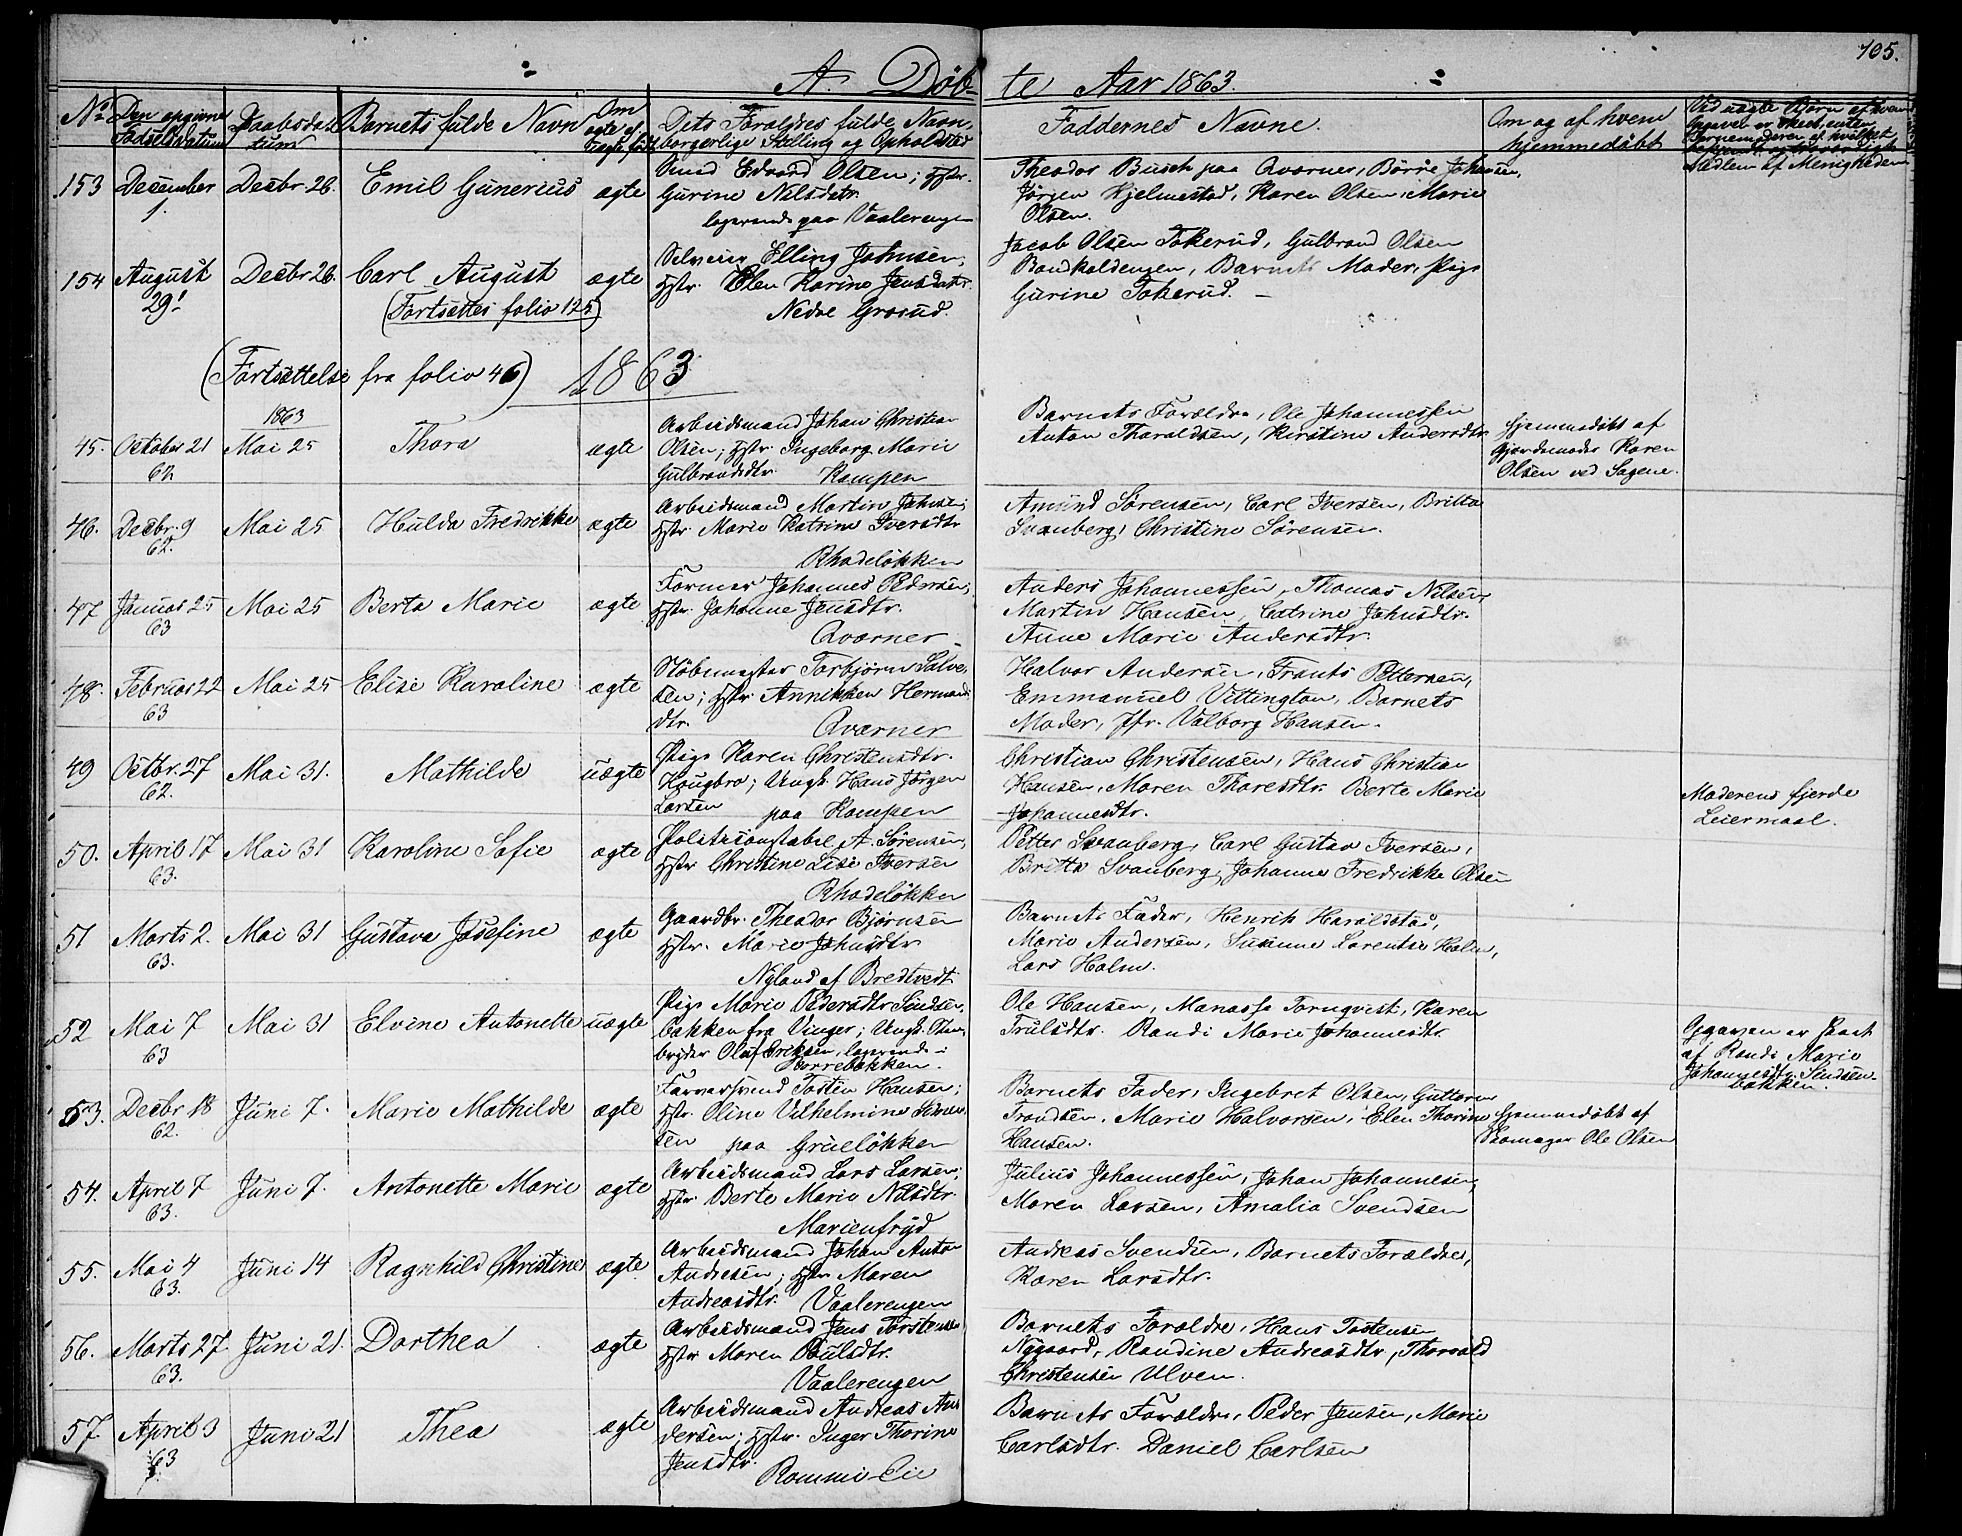 105.
A. Döbte Aar 1863.
No
Den opgivne Fødselsdatum
Daabsdatum
Barnets fulde Navn
Om ægte el. uægte født
Dets Forældres fulde Navn, borgerlige Stilling og Opholdsted
Faddernes Navne.
Om og af hvem hjemmedøbt
Medlem af Menigheden
153 December 1. Decbr 26. Emil Gunerius ægte
Edvard Olsen; Hstr.
Gurine Nilsdtr.
logerende paa Vaalerengen
Theodor Busch paa Qværner, Børre Johansen,
Jørgen Hjelmestad, Karen Olsen, Marie
Olsen.
154 August 29! Decbr 26. Carl August ægte
(Fortsættes folio 125)
Selveier Elling Johnsen,
Hstr. Elen Karine Jensdatr.
Nedre Grorud.
Jacob Olsen Tokerud, Gulbrand Olsen
Barnets Moder, Pige
Gurine Tokerud. —
(Fortsættelse fra folio 46) 1863
1863
45. October 21 62 Mai 25 Thora ægte
Arbeidsmand Johan Christian
Olsen; Hstr. Ingeborg Marie
Gulbrandsdtr. Kampen
Barnets Forældre, Ole Johannessen
Anton Tharaldsen, Kirstine Andersdtr.
Hjemmedøbt af
Gjordemoder Karen
Olsen ved Sagene.
46. Decbr. 9 62. Mai 25 Hulda Fredrikke ægte
Arbeidsmand Martin Johnsen;
Hstr Marie Katrine Iversdtr
Rhodeløkken
Amund Sørensen, Carl Iversen, Britta
Svanberg, Christine Sørensen.
47 Januar 25 63 Mai 25 Berta Marie ægte
Former Johannes Pedersen;
Hstr. Johanne Jensdtr.
Qværner
Anders Johannessen, Thomas Nilsen,
Martin Hansen, Catrine Johnsdtr.
Anne Marie Andersdtr.
48. Februar 22 63 Mai 25 Elise Karoline ægte
Støbemester Torbjørn Salve-
sen; Hstr Annikken Hermands
dtr. Qværner
Halvor Andersen, Frants Pettersen,
Emmanuel Vittington, Barnets
Moder, Jfr. Valborg Hansen.
49 Octbr. 27 62. Mai 31. Mathilde uægte
Pige Karen Christensdtr.
Haugbro; Ungk. Hans Jørgen
Larsen paa Kampen
Christian Christensen, Hans Christian
Hansen, Maren Thoresdtr. Berte Marie
Johannesdtr.
Moderens fjerde
Leiermaal.
50. April 17 63. Mai 31 Karoline Sofie ægte
Politiconstabel A. Sørensen,
Hstr Christine Lise Iversen
Rhodeløkken
Petter Svanberg, Carl Gustav Iversen,
Britta Svanberg, Johanne Fredrikke Olsen
51 Marts 2. 63. Mai 31 Gustava Josefine ægte
Gaardbr. Theodor Bjørnsen
Hstr. Marie Johnsdtr
Nyland af Bredtvedt
Barnets Fader, Henrik Haraldstad,
Marie Andersen, Susanne Lorentse Holm,
Lars Holm.
52 Mai 7 63 Mai 31 Elvine Antonette uægte
Pige Marie Pedersdtr Sindsen-
bakken fra Vinger; Ungk. Sten-
bryder Oluf Eriksen, logerende i
Korrebakken.
Ole Hansen, Manasse Tornqvist, Karen
Trulsdtr. Randi Marie Johannesdtr.
Opgaven er skeet
af Randi Marie
Johannesdtr Sindsen-
bakken
53. Decbr 18 62. Juni 7. Marie Mathilde ægte
Farversvend Tosten Hansen;
Hstr. Oline Vilhelmine Simen-
sen paa Grüeløkken
Barnets Fader, Ingebret Olsen, Guttorm
Trondsen, Marie Halvorsen, Elen Thorine
Hansen.
Hjemmedøbt af
Skomager Ole Olsen
54. April 7 63. Juni 7. Antonette Marie ægte
Arbeidsmand Lars Larsen;
Hstr Berte Marie Nilsdtr.
Marienfryd
Julius Johannessen, Johan Johannesen,
Maren Larsen, Amalia Svendsen
55. Mai 4 63. Juni 14 Ragnhild Christine ægte
Arbeidsmand Johan Anton
Andresen; Hstr Maren
Andreasdtr. Vaalerengen
Andreas Svendsen, Barnets Forældre,
Karen Larsdtr.
56. Marts 27 63. Juni 21. Dorthea ægte
Arbeidsmand Jens Torstensen
Hstr Maren Paulsdtr.
Vaalerengen
Barnets Forældre, Hans Tostensen
Nygaard, Randine Andreasdtr, Thorvald
Christensen Ulven.
57. April 3 63 Juni 21 Thea ægte
Arbeidsmand Andreas An-
dersen; Hstr. Inger Thorine
Jensdtr. Rommi Eie
Barnets Forældre, Peder Jensen, Marie
Carlsdtr. Daniel Carlsen